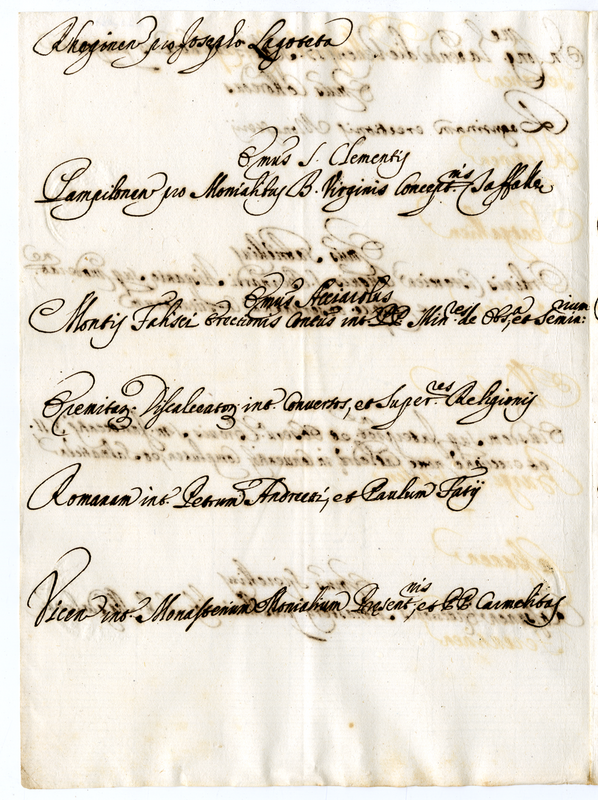 Rheginen pro Josepho Lagoteta
Emus S. Clementis
Pampilonen pro Monialibus B. Virginis Concept.nis Jaffalae
Emus Acciaiolus
Montis Falisci erectionis Conciis int. PP. Min.res de Obs.a et Semin.rium
Eremitaz. Discalceatoz int. Conversos, et Super.res Religionis
Romanam int. Petrum Andreozi, et Paulum Fatij
Vicen int. Monasterium Monialium Present.nis, et PP Carmelitas